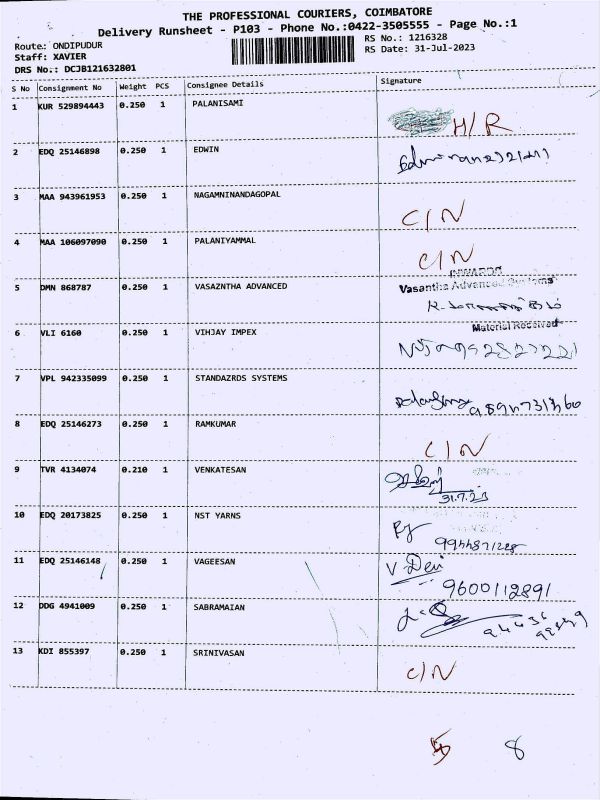 THE PROFESSIONAL COURIERS, COIMBATORE
Delivery Runsheet - P103 - Phone No.:0422-3505555 - Page No.:1
Route: ONDIPUDUR RS No.: 1216328
Staff: XAVIER RS Date: 31-Jul-2023
DRS No.: DCJB121632801
S No Consignment No Weight PCS Consignee Details Signature
1 KUR 529894443 0.250 1 PALANISAMI H/R
2 EDQ 25146898 0.250 1 EDWIN
3 MAA 943961953 0.250 1 NAGAMNINANDAGOPAL C/N
4 MAA 106097090 0.250 1 PALANIYAMMAL C/N
INWARDS
5 DMN 868787 0.250 1 VASAZNTHA ADVANCED Vasantha Advanced Systems
Material Received
6 VLI 6160 0.250 1 VIHJAY IMPEX
7 VPL 942335099 0.250 1 STANDAZRDS SYSTEMS
8 EDQ 25146273 0.250 1 RAMKUMAR C/N
9 TVR 4134074 0.210 1 VENKATESAN
31.7.23
10 EDQ 20173825 0.250 1 NST YARNS
11 EDQ 25146148 0.250 1 VAGEESAN V Devi
9600112891
12 DDG 4941009 0.250 1 SABRAMAIAN
13 KDI 855397 0.250 1 SRINIVASAN C/N
5 8